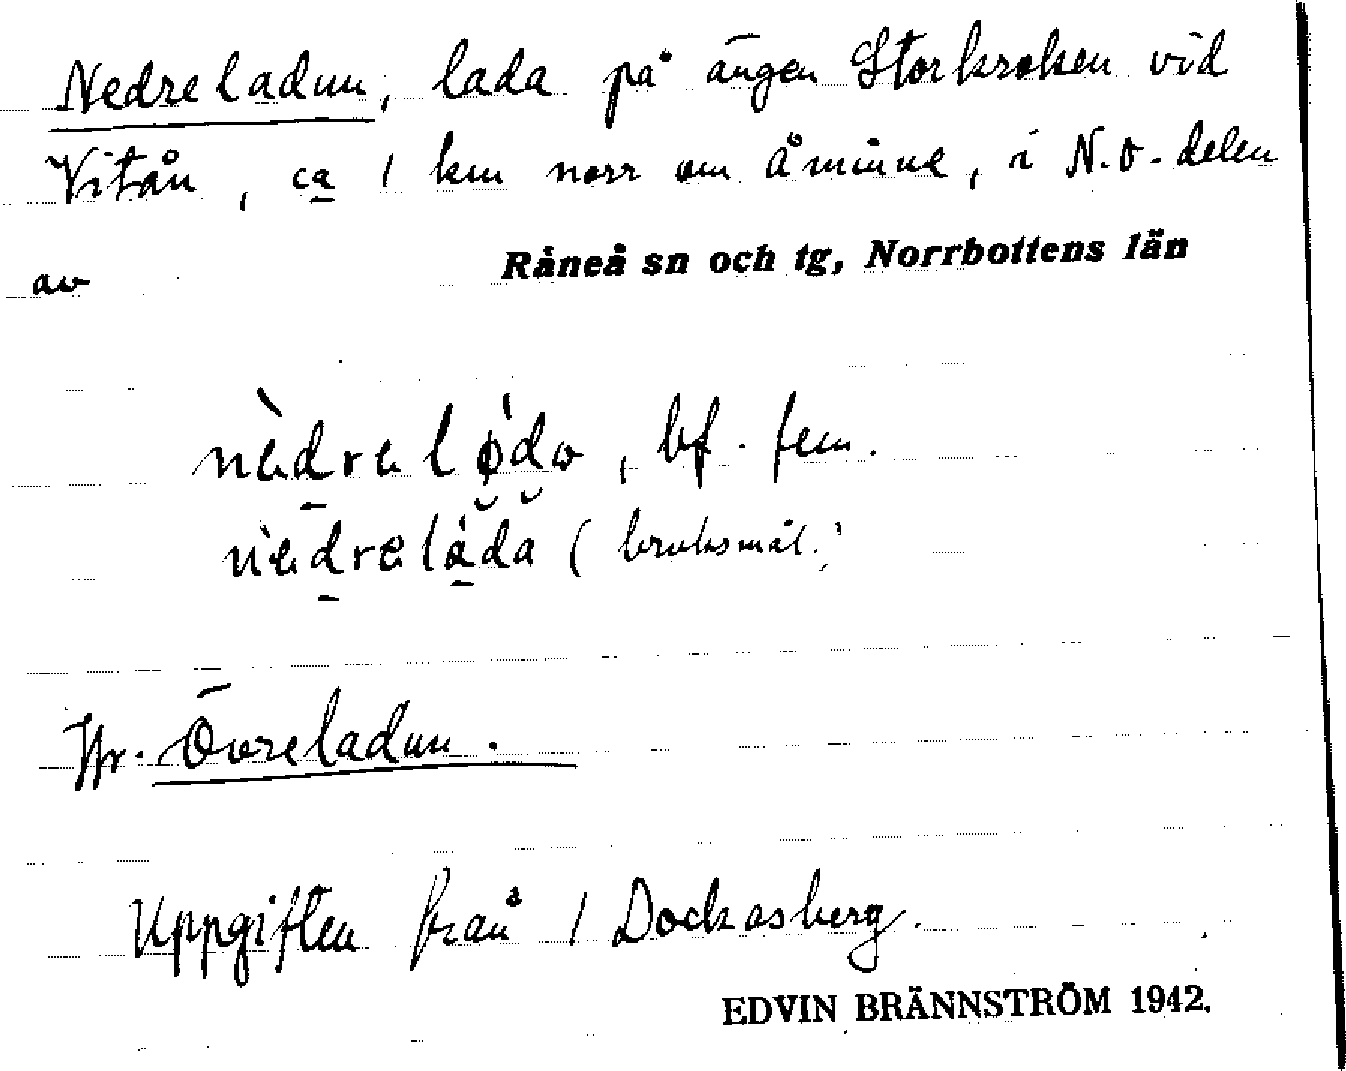 Nedreladun, lada på ängen Storkroken vid
Vitån, ca 1 km norr om Åminne, i N.O-delen
av Råneå sn och tg, Norrbottens län
bf. fem.
(bruksmål.)
Jfr. Övreladun.
Uppgiften från 1 Dockasberg.
EDVIN BRÄNNSTRÖM 1942.